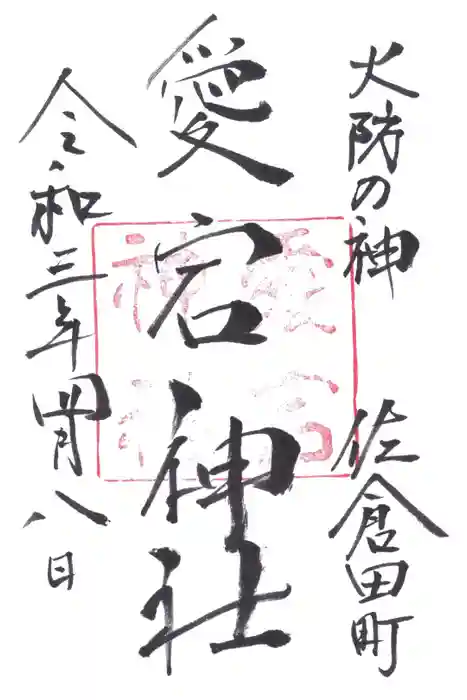 火防の神
佐倉田町
愛宕神社
愛宕
神社
令和三年四月八日